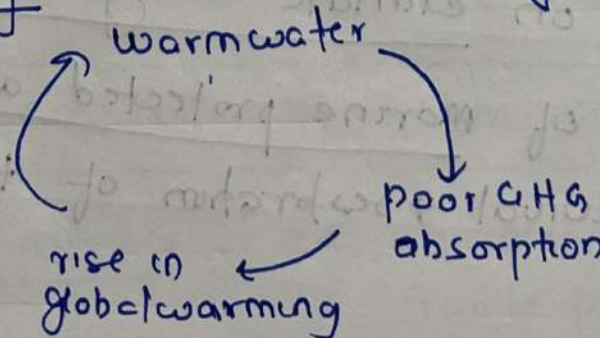 warm water
poor GHG
absorption
rise in
global warming